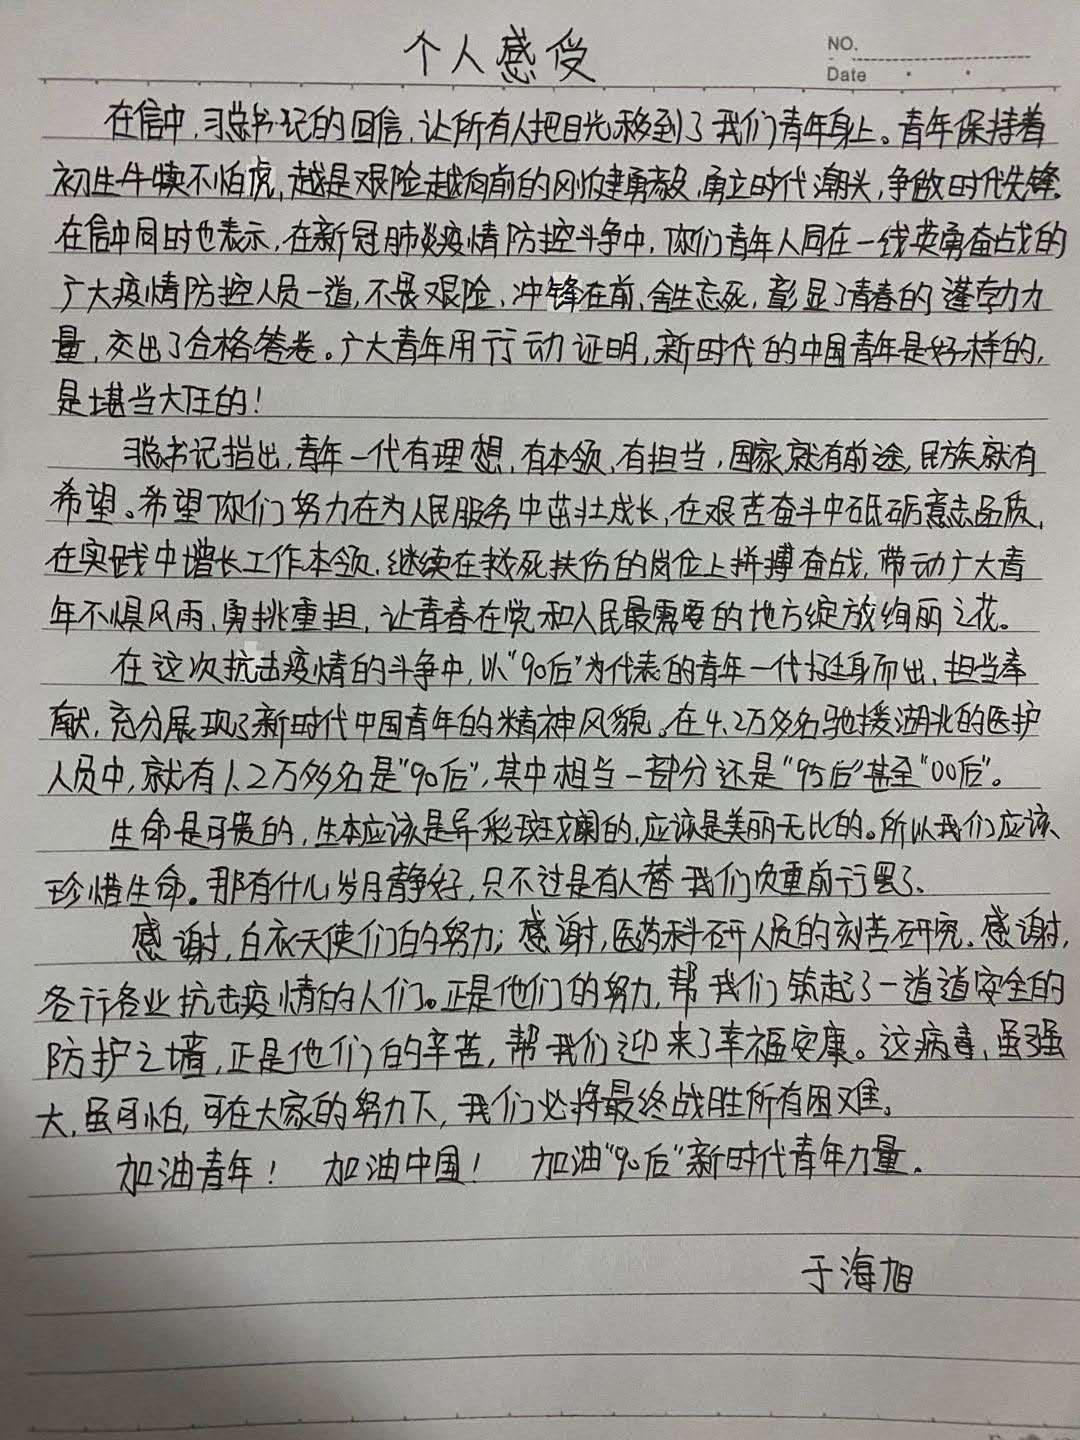 个人感受
NO.
Date
在信中，习总书记的回信，让所有人把目光移到了我们青年身上。青年保持着
初生牛犊不怕虎，越是艰险越向前的刚健勇毅，勇立时代潮头，争做时代先锋。
在信中同时也表示，在新冠肺炎疫情防控斗争中，你们青年人同在一线英勇奋战的
广大疫情防控人员一道，不畏艰险、冲锋在前、舍生忘死，彰显了青春的蓬勃力
量，交出了合格答卷。广大青年用行动证明，新时代的中国青年是好样的，
是堪当大任的！
习总书记指出，青年一代有理想、有本领、有担当，国家就有前途，民族就有
希望。希望你们努力在为人民服务中茁壮成长，在艰苦奋斗中砥砺意志品质，
在实践中增长工作本领，继续在救死扶伤的岗位上拼搏奋战，带动广大青
年不惧风雨、勇挑重担，让青春在党和人民最需要的地方绽放绚丽之花。
在这次抗击疫情的斗争中，以“90后”为代表的青年一代挺身而出、担当奉
献，充分展现了新时代中国青年的精神风貌。在4.2万多名驰援湖北的医护
人员中，就有1.2万多名是“90后”，其中相当一部分还是“95后”甚至“00后”。
生命是可贵的，生本应该是异彩斑斓的，应该是美丽无比的。所以我们应该
珍惜生命。那有什么岁月静好，只不过是有人替我们负重前行罢了、
感谢，白衣天使们的努力；感谢，医药科研人员的刻苦研究。感谢，
各行各业抗击疫情的人们。正是他们的努力，帮我们筑起了一道道安全的
防护之墙，正是他们的辛苦，帮我们迎来了幸福安康。这病毒，虽强
大，虽可怕，可在大家的努力下，我们必将最终战胜所有困难。
加油青年！ 加油中国！ 加油“90后”新时代青年力量。
于海旭